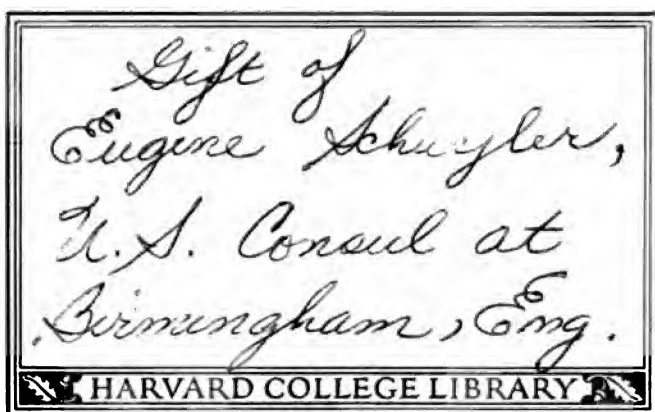 Gift of
Eugene Schuyler,
U.S. Consul at
Birmingham, Eng.
HARVARD COLLEGE LIBRARY